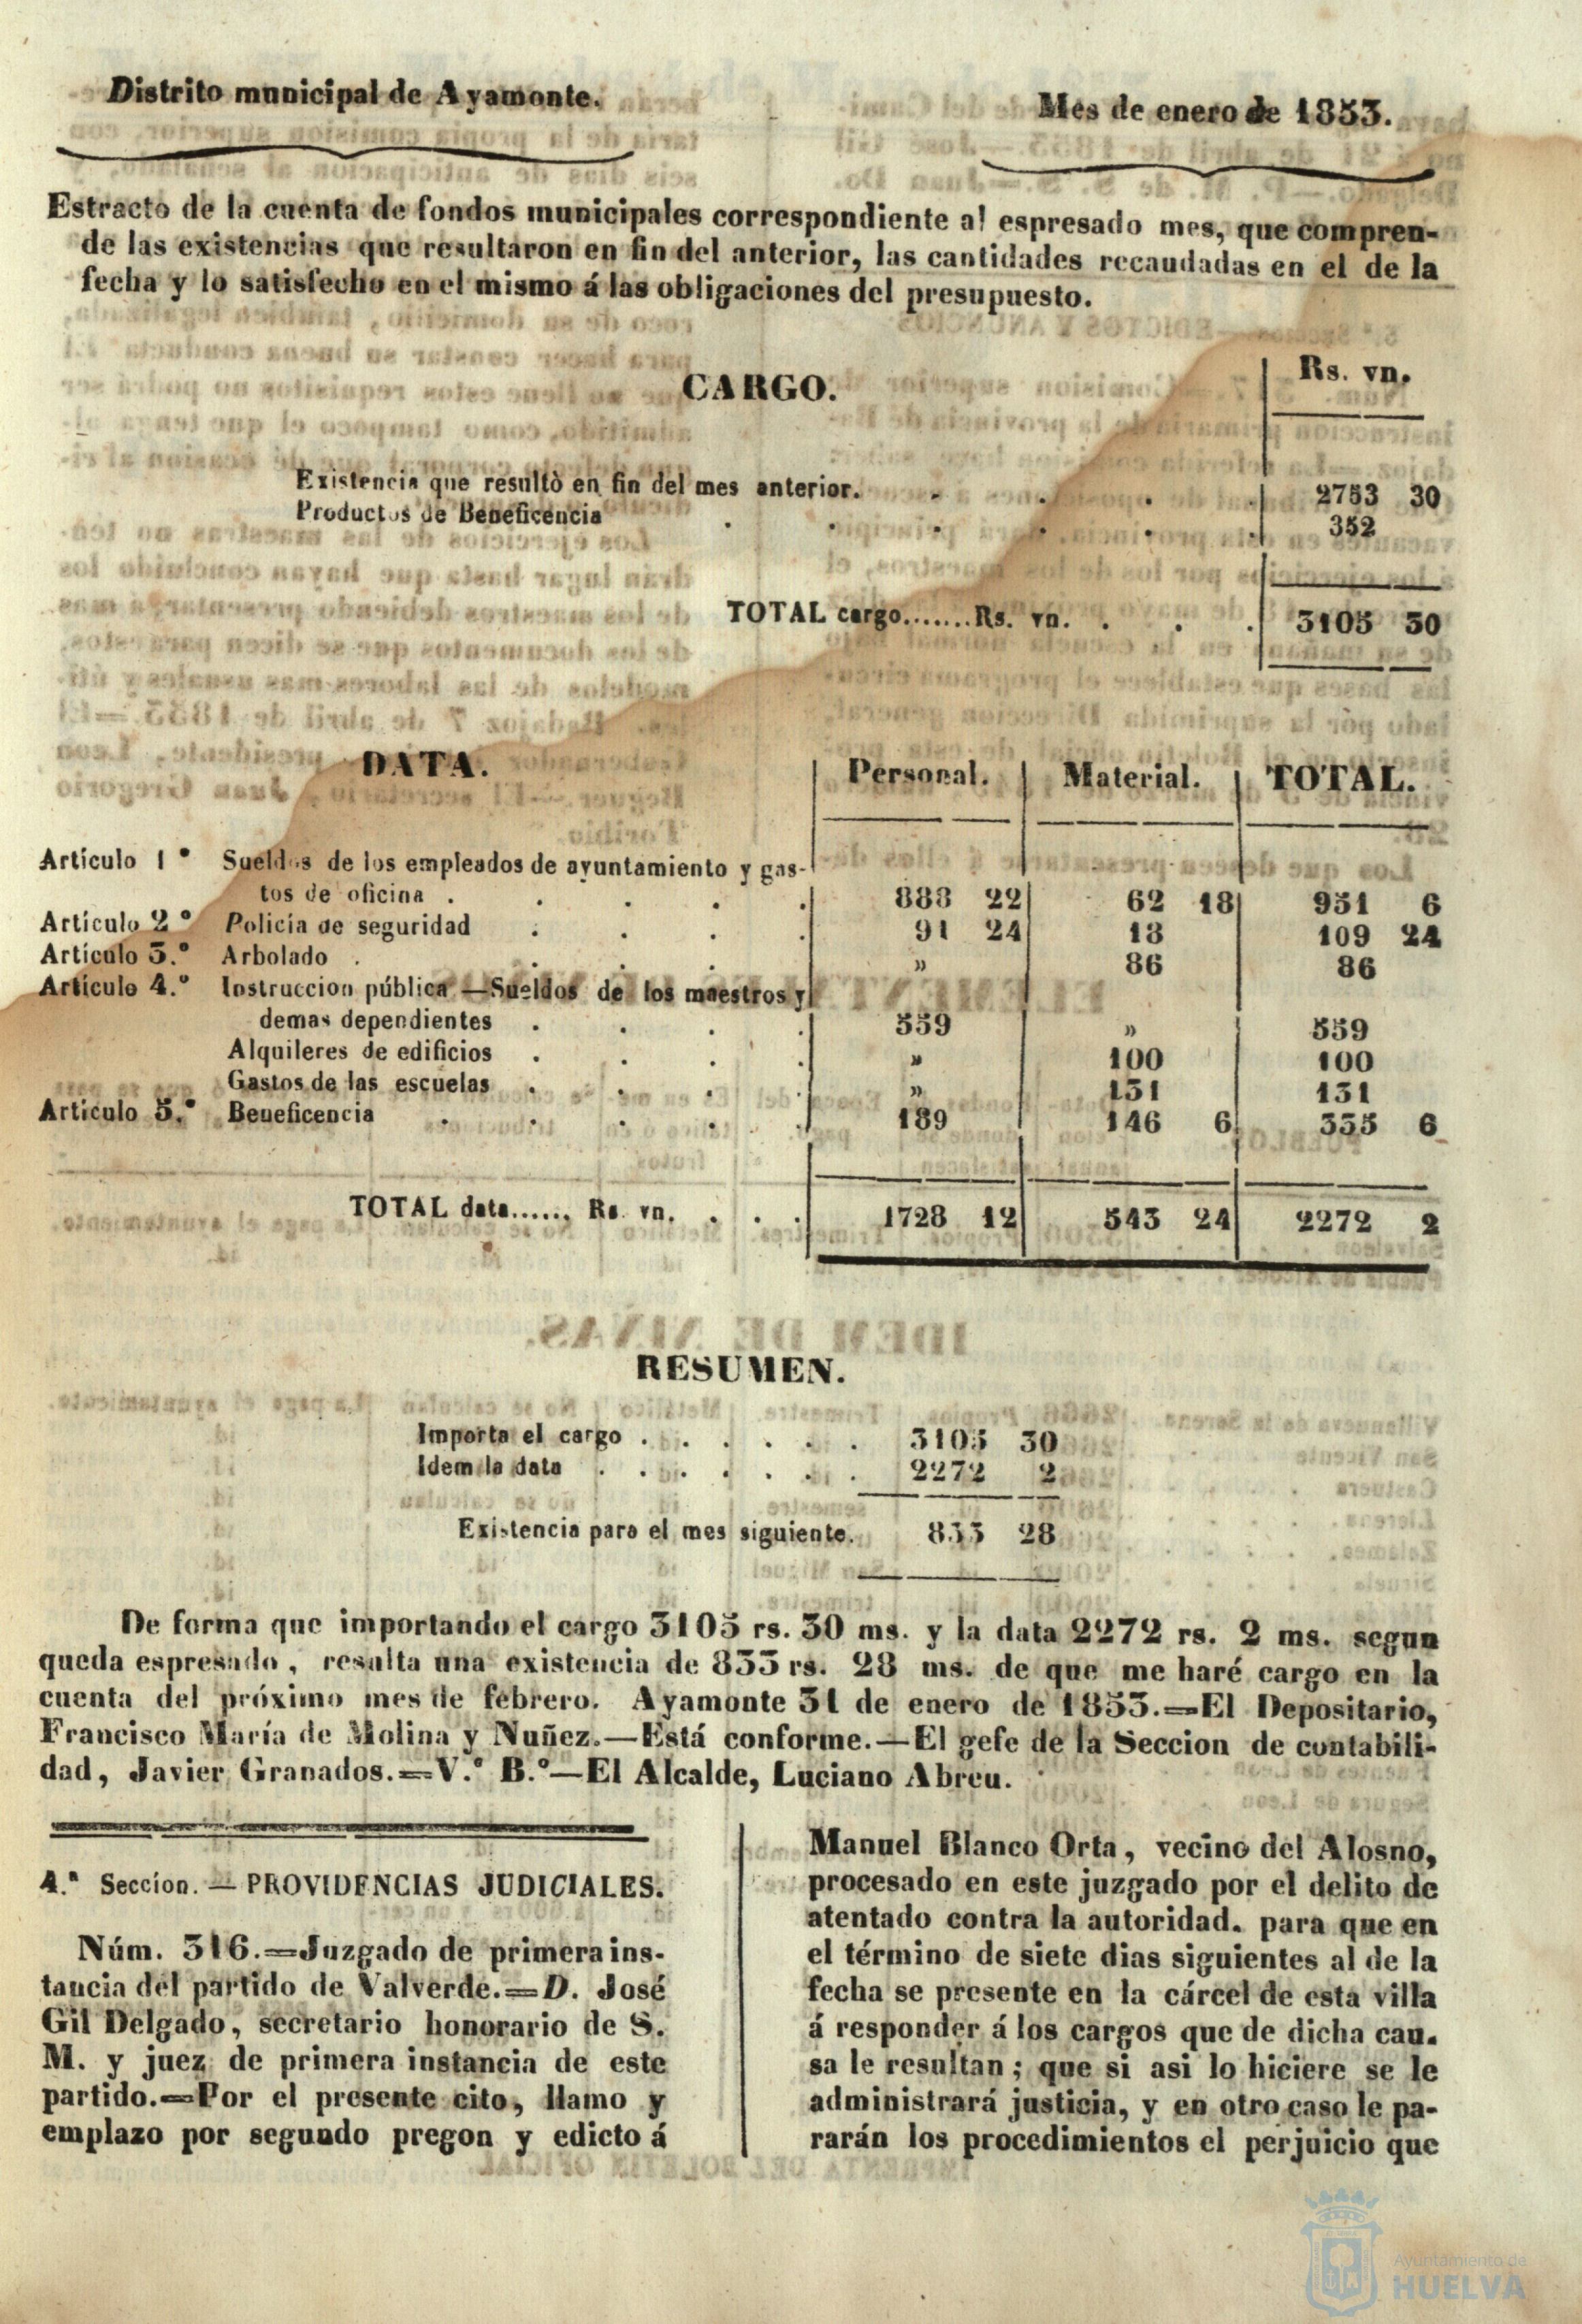 Distrito municipal de Ayamonte.
Mes de enero de 1853.
Estracto de la cuenta de fondos municipales correspondiente al espresado mes, que compren-
de las existencias que resultaron en fin del anterior, las cantidades recaudadas en el de la
fecha y lo satisfecho en el mismo á las obligaciones del presupuesto.
CARGO. Rs. vn.
Existencia que resultò en fin del mes anterior. . . . . 2753 30
Productos de Beneficencia . . . . . . 352
TOTAL cargo.......Rs. vn. . . . 3105 30
DATA. Personal. Material. TOTAL.
Artículo 1º Sueldos de los empleados de ayuntamiento y gas-
tos de oficina . . . . . 888 22 62 18 951 6
Artículo 2º Policía de seguridad . . . . 91 24 18 109 24
Artículo 3.º Arbolado . . . . . » 86 86
Artículo 4.º Instruccion pública —Sueldos de los maestros y
demas dependientes . . . . 559 » 559
Alquileres de edificios . . . . » 100 100
Gastos de las escuelas . . . . » 131 131
Artículo 5.º Beneficencia . . . . . 189 146 6 335 6
TOTAL data...... Rs vn. . . . 1728 12 543 24 2272 2
RESUMEN.
Importa el cargo . . . . . . 3105 30
Idem la data . . . . . . . 2272 2
Existencia para el mes siguiente. 833 28
De forma que importando el cargo 3105 rs. 30 ms. y la data 2272 rs. 2 ms. segun
queda espresado, resulta una existencia de 833 rs. 28 ms. de que me haré cargo en la
cuenta del próximo mes de febrero. Ayamonte 31 de enero de 1853.=El Depositario,
Francisco María de Molina y Nuñez.—Está conforme.—El gefe de la Seccion de contabili-
dad, Javier Granados.=V.º B.º—El Alcalde, Luciano Abreu.
4.ª Seccion. — PROVIDENCIAS JUDICIALES.
Núm. 316.=Juzgado de primera ins-
tancia del partido de Valverde.=D. José
Gil Delgado, secretario honorario de S.
M. y juez de primera instancia de este
partido.=Por el presente cito, llamo y
emplazo por segundo pregon y edicto á
Manuel Blanco Orta, vecino del Alosno,
procesado en este juzgado por el delito de
atentado contra la autoridad. para que en
el término de siete dias siguientes al de la
fecha se presente en la cárcel de esta villa
á responder á los cargos que de dicha cau-
sa le resultan; que si asi lo hiciere se le
administrará justicia, y en otro caso le pa-
rarán los procedimientos el perjuicio que
Ayuntamiento de
HUELVA